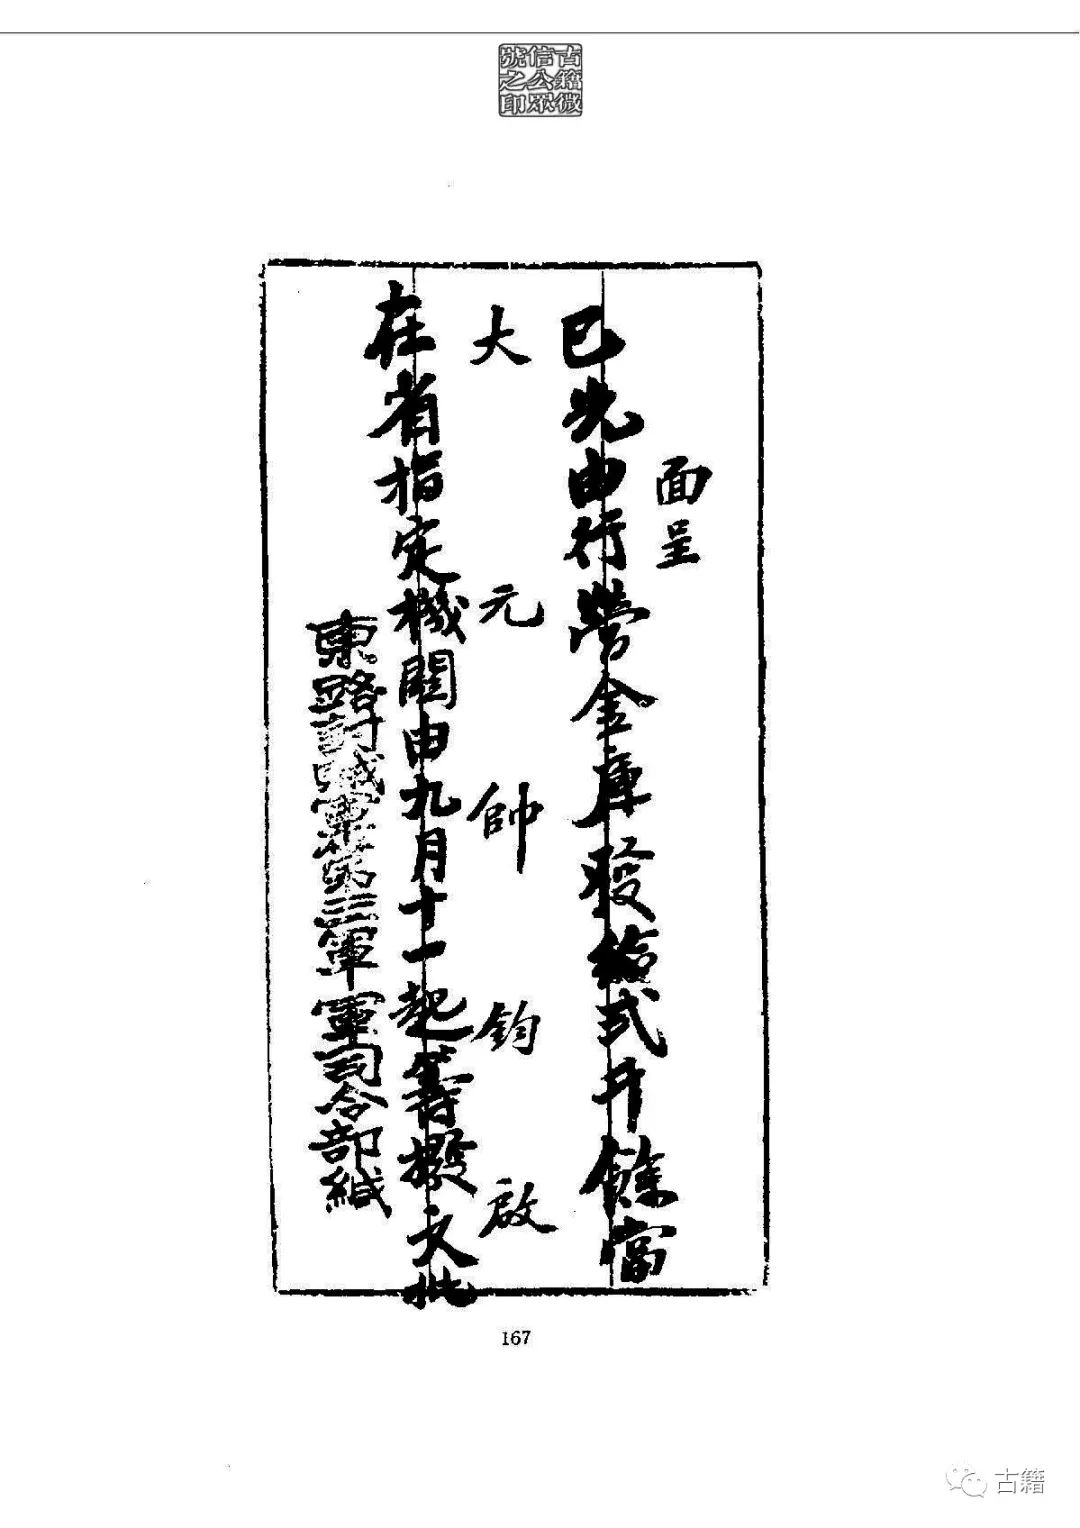 古籍微
信公眾
號之印
面呈
已先由行營金庫發給弍千餘當
大元帥鈞啟
在省指定機關由九月十一起籌撥文批
東路討賊軍第三軍軍司令部緘
167
古籍